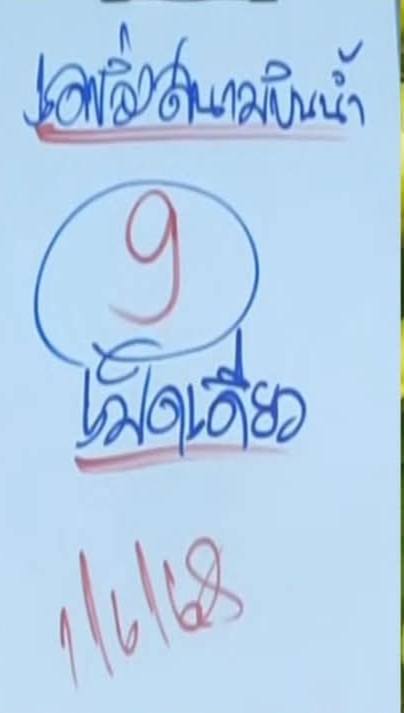 เอฟซีสนามบินน้ำ
9
เม็ดเดียว
1/6/68